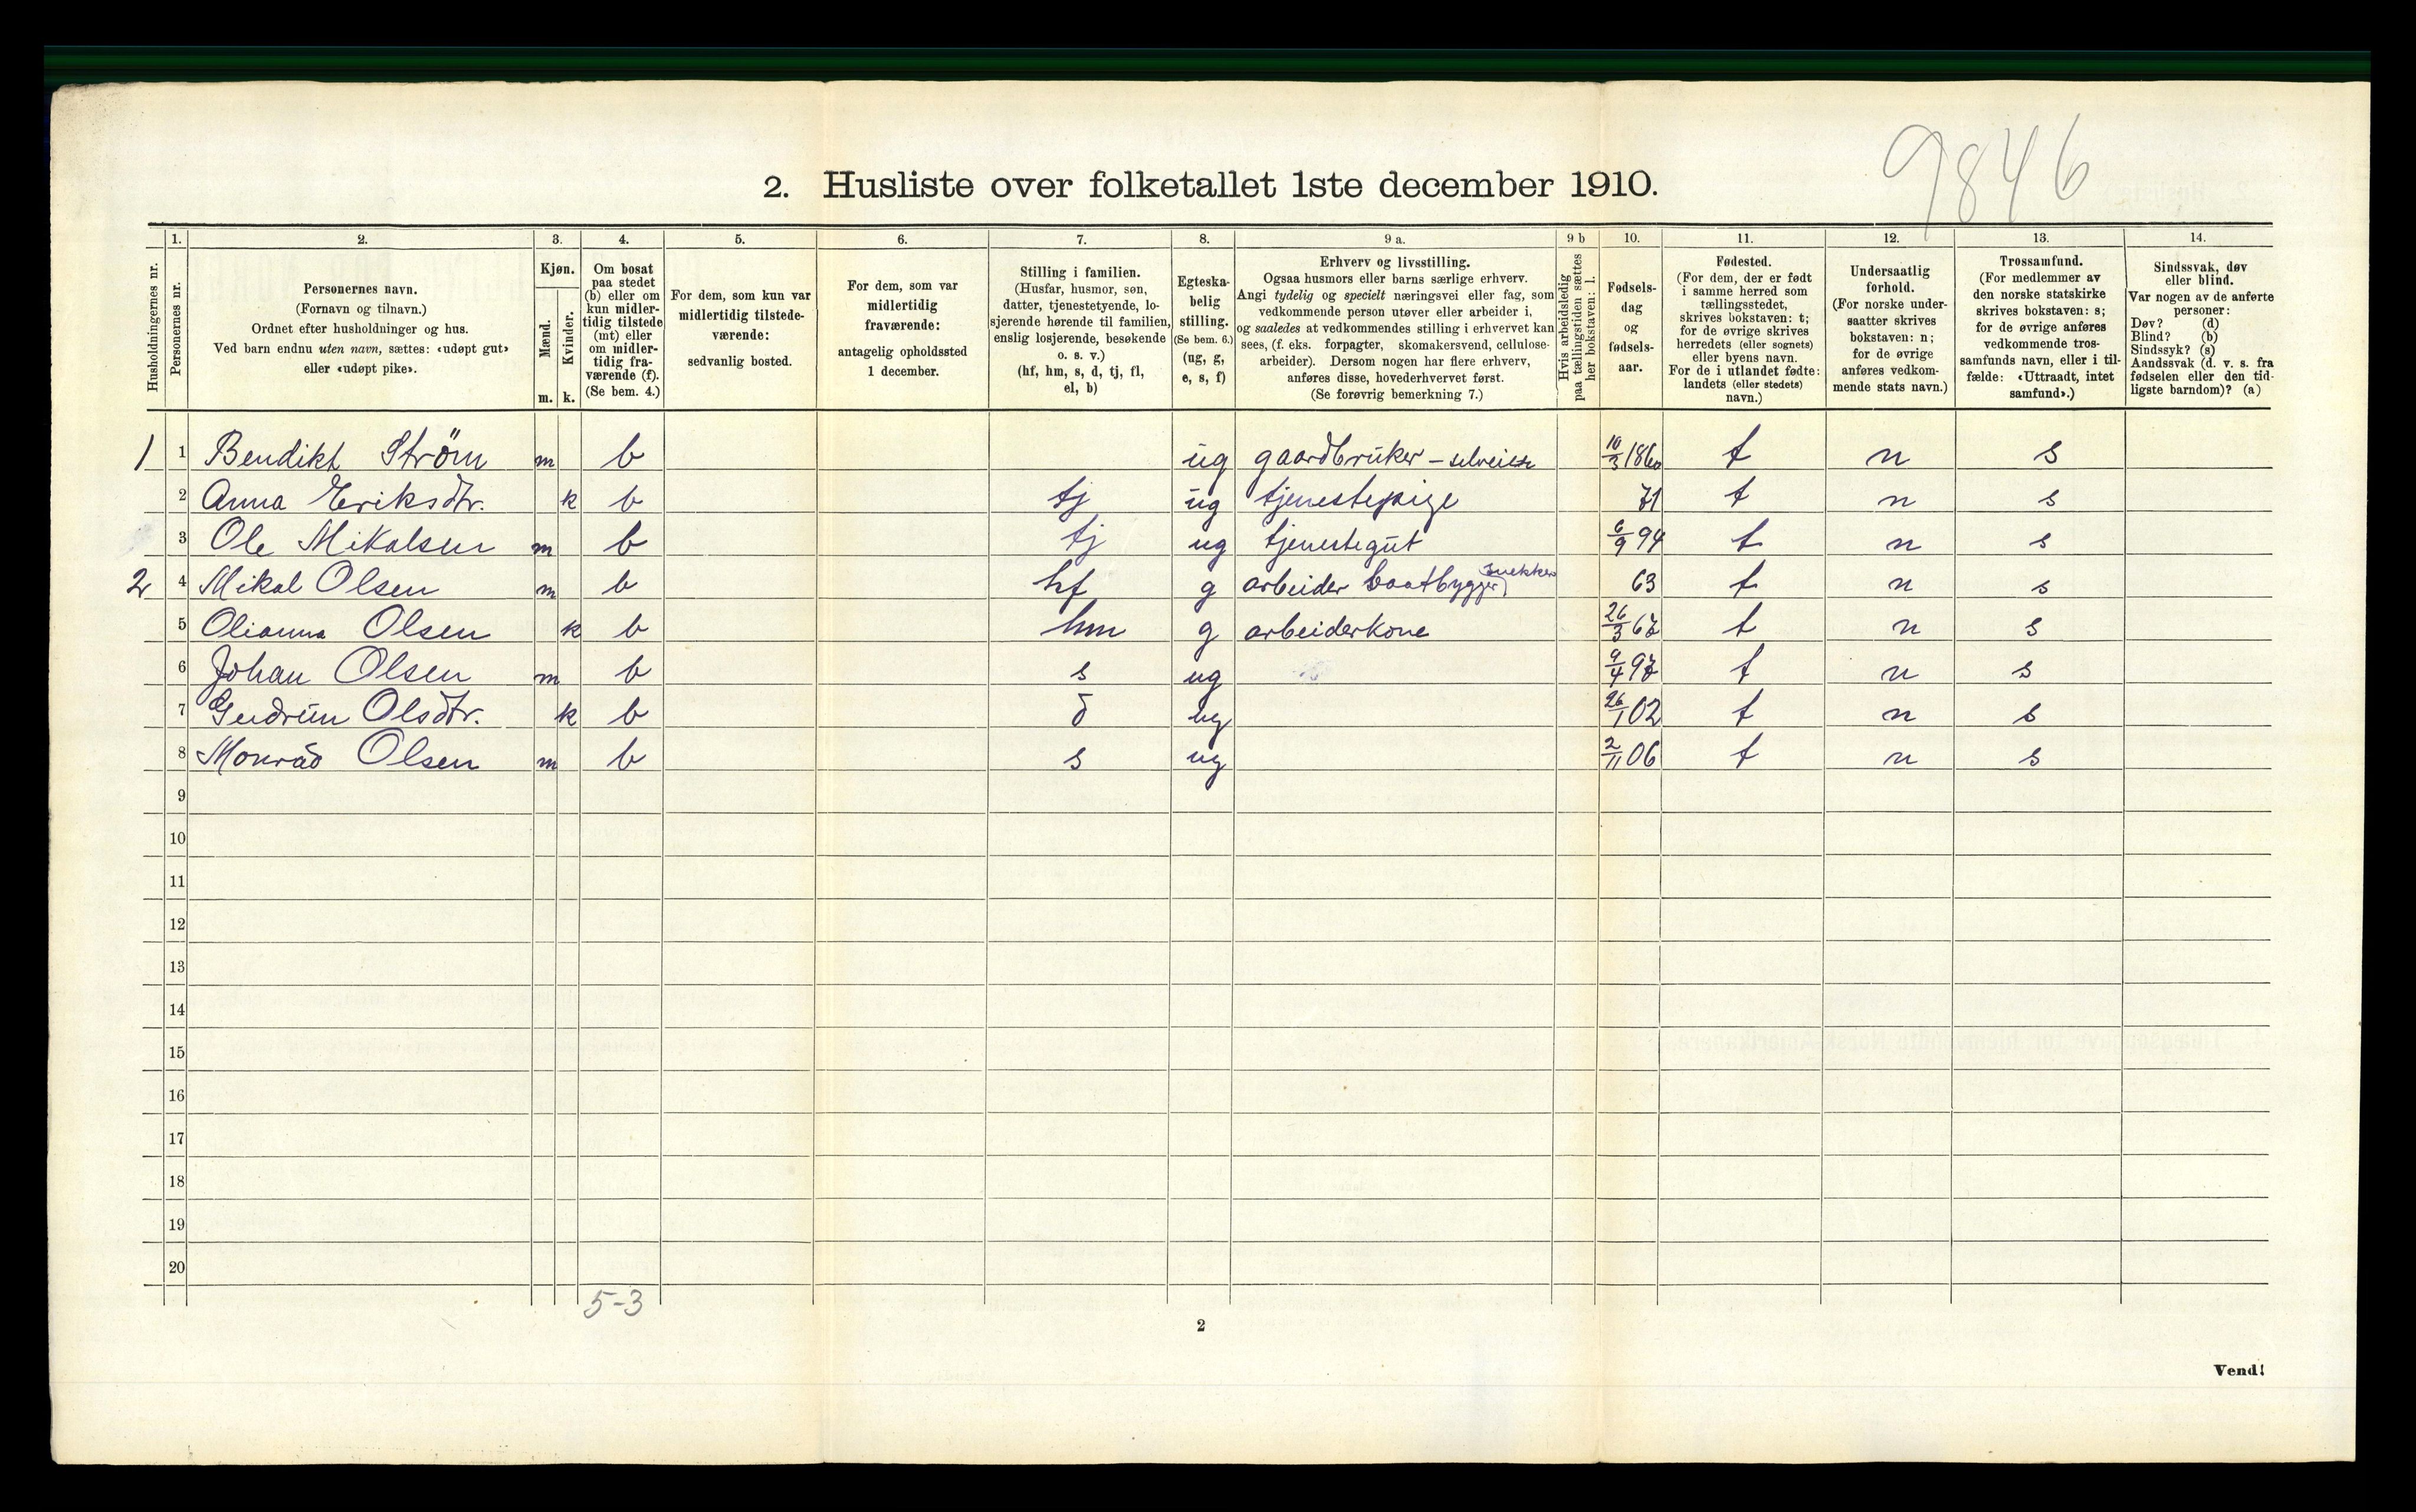 9846
2. Husliste over folketallet 1ste december 1910.
Husholdningernes nr.
1.
Personernes nr.
2.
Personernes navn.
(Fornavn og tilnavn.)
Ordnet efter husholdninger og hus.
Ved barn endnu uten navn, sættes: «udøpt gut»
eller «udøpt pike».
3.
Kjøn.
Mænd.
Kvinder.
m. k.
4.
Om bosat
paa stedet
(b) eller om
kun midler-
tidig tilstede
(mt) eller
om midler-
tidig fra-
værende (f).
(Se bem. 4.)
5.
For dem, som kun var
midlertidig tilstede-
værende:
sedvanlig bosted.
6.
For dem, som var
midlertidig
fraværende:
antagelig opholdssted
1 december.
7.
Stilling i familien.
(Husfar, husmor, søn,
datter, tjenestetyende, lo-
sjerende hørende til familien,
enslig losjerende, besøkende
o. s. v.)
(hf, hm, s, d, tj, fl,
el, b)
8.
Egteska-
belig
stilling.
(Se bem. 6.)
(ug, g,
e, s, f)
9 a.
Erhverv og livsstilling.
Ogsaa husmors eller barns særlige erhverv.
Angi tydelig og specielt næringsvei eller fag, som
vedkommende person utøver eller arbeider i,
og saaledes at vedkommendes stilling i erhvervet kan
sees, (f. eks. forpagter, skomakersvend, cellulose-
arbeider). Dersom nogen har flere erhverv,
anføres disse, hovederhvervet først.
(Se forøvrig bemerkning 7.)
9 b
Hvis arbeidsledig
paa tællingstiden sættes
her bokstaven: l.
10.
Fødsels-
dag
og
fødsels-
aar.
11.
Fødested.
(For dem, der er født
i samme herred som
tællingsstedet,
skrives bokstaven: t;
for de øvrige skrives
herredets (eller sognets)
eller byens navn.
For de i utlandet fødte:
landets (eller stedets)
navn.)
12.
Undersaatlig
forhold.
(For norske under-
saatter skrives
bokstaven: n;
for de øvrige
anføres vedkom-
mende stats navn.)
13.
Trossamfund.
(For medlemmer av
den norske statskirke
skrives bokstaven: s;
for de øvrige anføres
vedkommende tros-
samfunds navn, eller i til-
fælde: «Uttraadt, intet
samfund».)
14.
Sindssvak, døv
eller blind.
Var nogen av de anførte
personer:
Døv? (d)
Blind? (b)
Sindssyk? (s)
Aandssvak (d. v. s. fra
fødselen eller den tid-
ligste barndom)? (a)
1 1 Bendikt Strøm m b ug gaardbruker - selveier 10/3 1860 t n s
2 Anna Eriksdtr. k b tj ug tjenestepige 71 t n s
3 Ole Mikalsen m b tj ug tjenestegut 6/9 94 t n s
2 4 Mikal Olsen m b hf g arbeider baatbygger snekker 63 t n s
5 Olianna Olsen k b hm g arbeiderkone 26/3 67 t n s
6 Johan Olsen m b s ug 9/4 97 t n s
7 Gudrun Olsdtr. k b d ug 26/1 02 t n s
8 Monrad Olsen m b s ug 2/11 06 t n s
9
10
11
12
13
14
15
16
17
18
19
20
5-3
2
Vend!